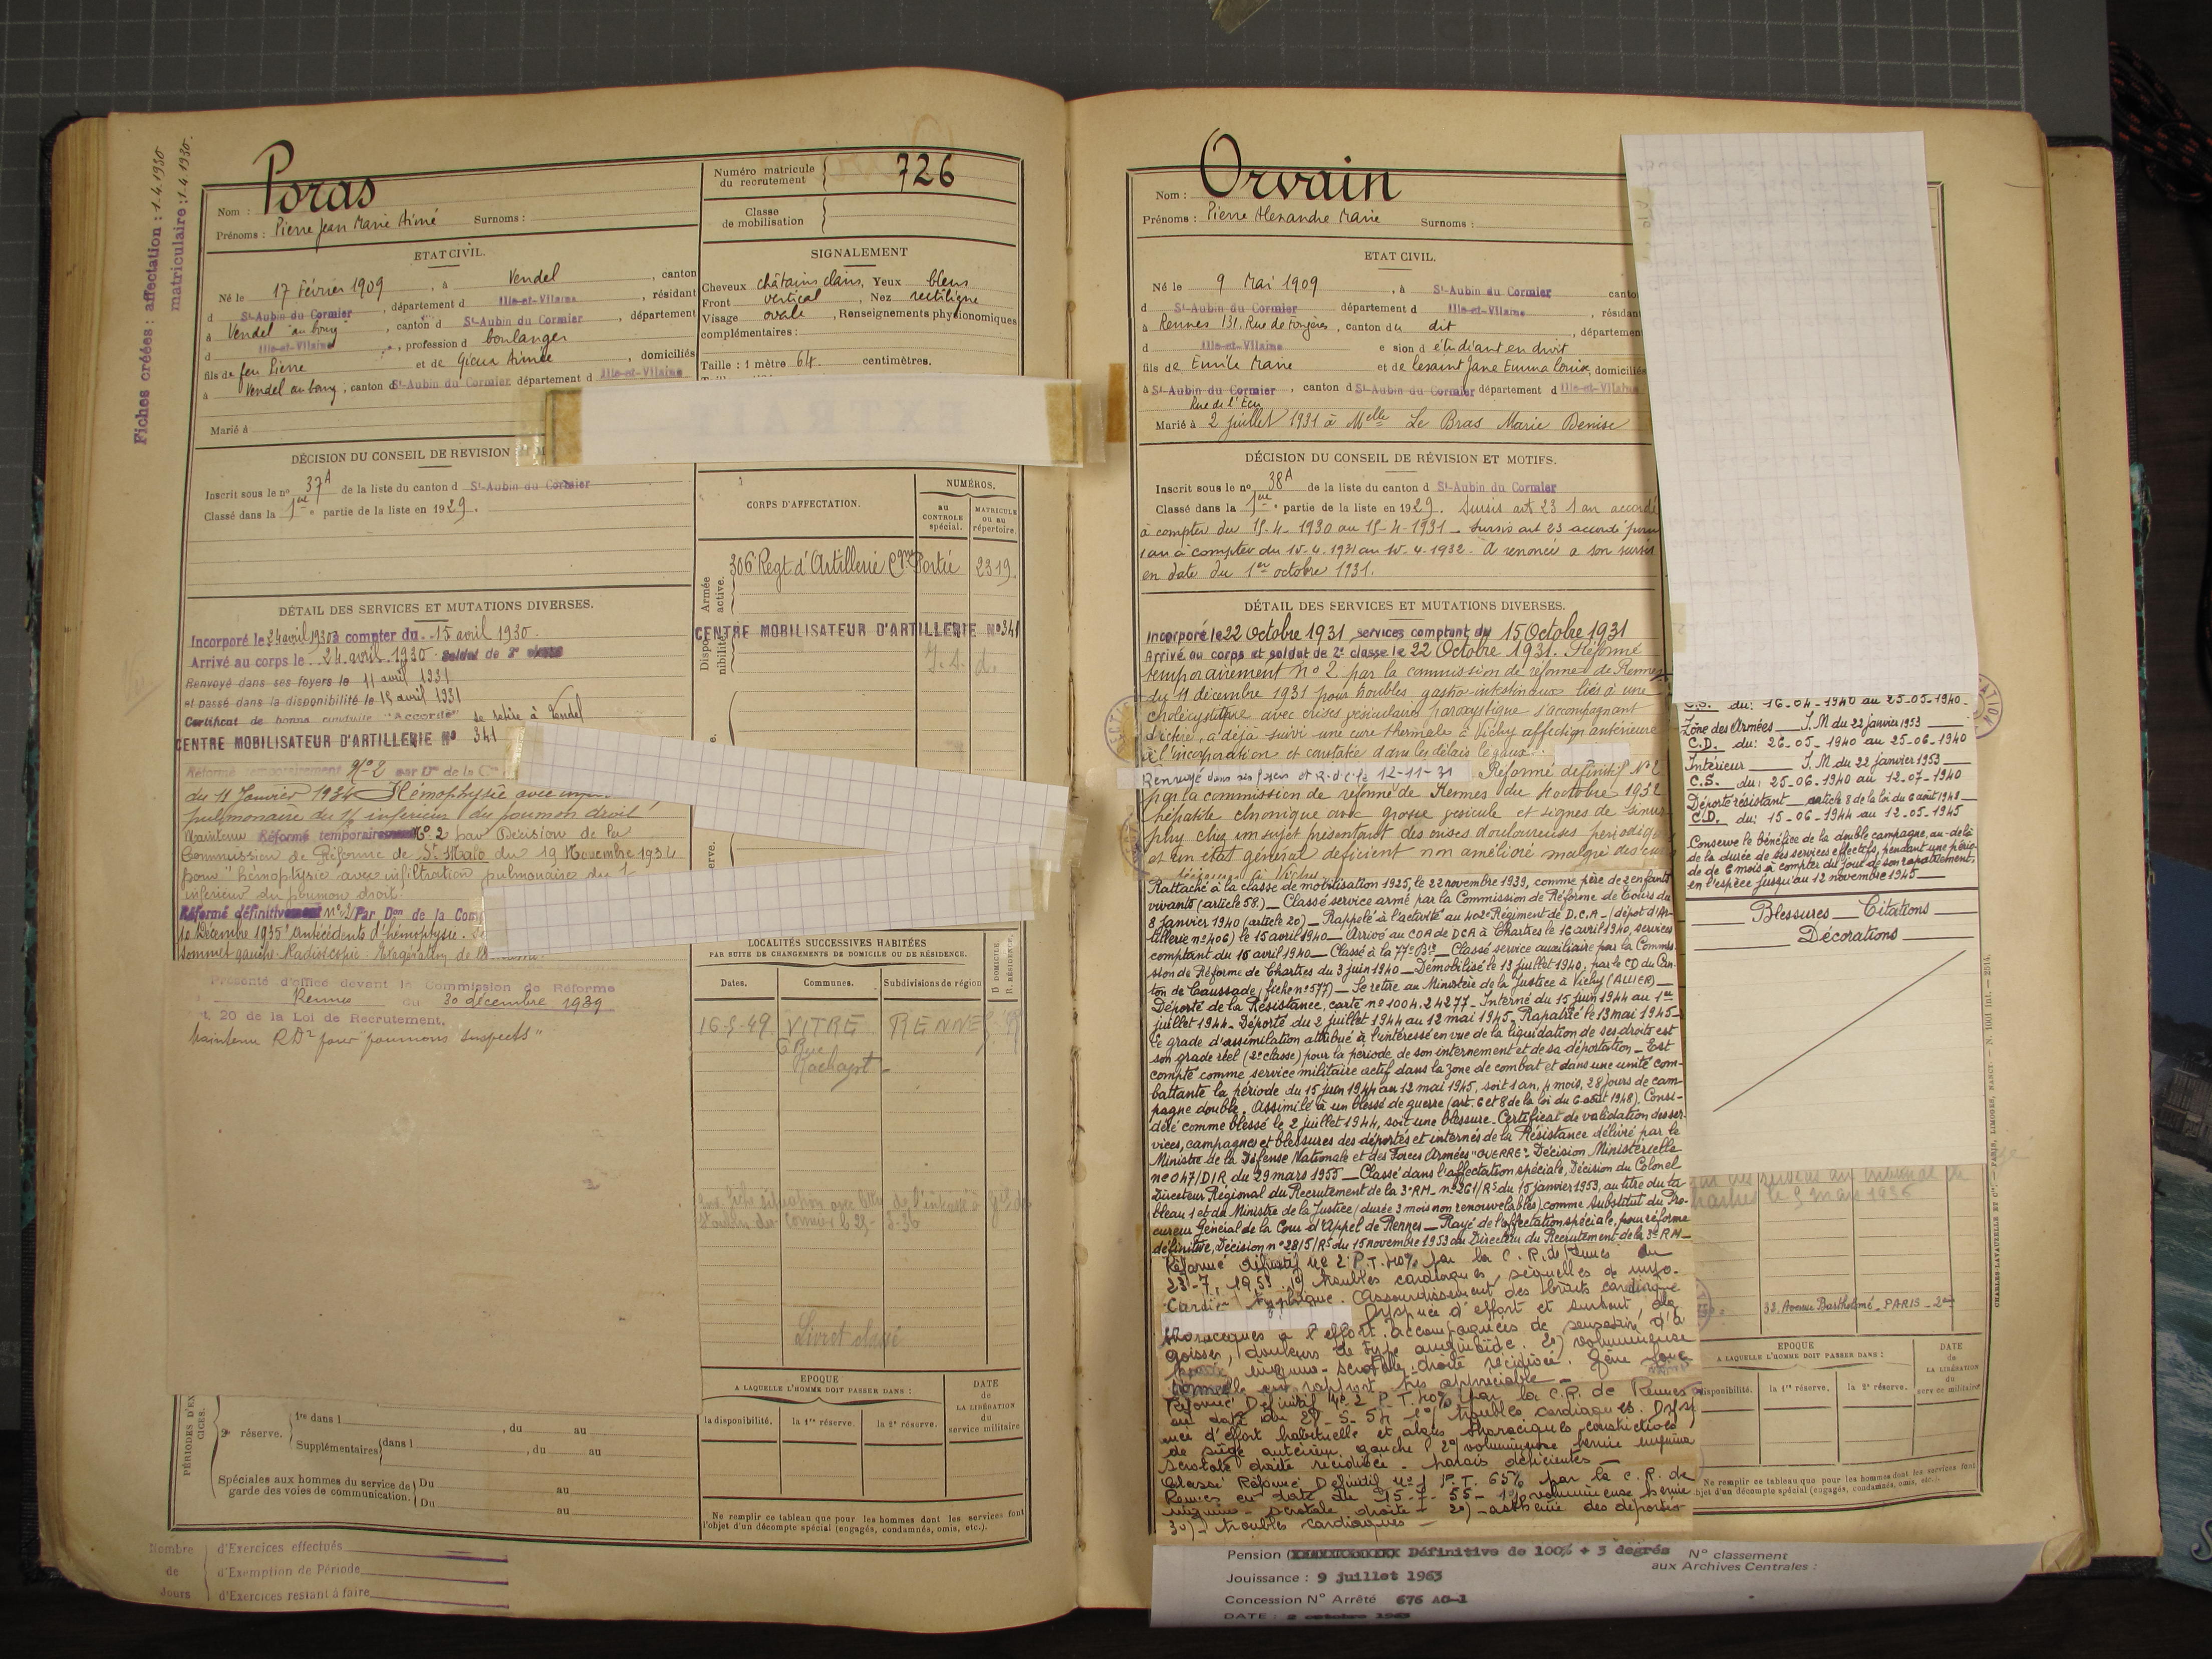 Fiches créées : affectation : 1.4.1930
matriculaire : 1.4.1930.
Nom : Poras
Prénoms : Pierre Jean Marie Aimé Surnoms :
ETAT CIVIL.
Né le 17 Février 1909, à Vendel, canton
d St-Aubin du Cormier, département d Ille-et-Vilaine, résidant
à Vendel "au bourg", canton d St-Aubin du Cormier, département
d Ille-et-Vilaine, profession d boulanger
fils de feu Pierre et de Gieux Aimée, domiciliés
à Vendel au bourg, canton d St-Aubin du Cormier département d Ille-et-Vilaine
Marié à
DÉCISION DU CONSEIL DE REVISION ET M
Inscrit sous le no 37A de la liste du canton d St-Aubin du Cormier
Classé dans la 1ère partie de la liste en 1929.
DÉTAIL DES SERVICES ET MUTATIONS DIVERSES.
Incorporé le 24 avril 1930 à compter du 15 avril 1930.
Arrivé au corps le 24 avril 1930 Soldat de 2e classe
Renvoyé dans ses foyers le 11 avril 1931
et passé dans la disponibilité le 15 avril 1931
Certificat de bonne conduite "Accordé" se retire à Vendel
CENTRE MOBILISATEUR D'ARTILLERIE No 341
Réformé temporairement No 2 par Don de la Con
du 11 Janvier 1934 Hémophysie avec
pulmonaire du 1/6 inférieur du poumon droit
Maintenu Réformé temporairement No 2 par Décision de la
Commission de Réforme de St Malo du 19 Novembre 1934
pour "hémoptysie avec infiltration pulmonaire du 1
inférieur du poumon droit.
Réformé définitivement no 2 Par Don de la Com
10 Décembre 1935 "Antécédents d'hémophysie.
sommet gauche. Radioscopie. Exagération de la
Présenté d'office devant la Commission de Réforme
Rennes du 30 décembre 1939
t. 20 de la Loi de Recrutement.
Maintenu RD2 pour "poumons suspects"
PÉRIODES D'EXERCICES.
2e réserve. 1re dans l , du au
Supplémentaires dans l , du au
Spéciales aux hommes du service de garde des voies de communication. Du au
Du au
au
Nombre de Jours
d'Exercices effectués
d'Exemption de Période
d'Exercices restant à faire
Numéro matricule du recrutement 726
Classe de mobilisation
SIGNALEMENT
Cheveux châtains clairs, Yeux bleus
Front vertical, Nez rectiligne
Visage ovale, Renseignements physionomiques
complémentaires :
Taille : 1 mètre 64 centimètres.
CORPS D'AFFECTATION.
NUMÉROS.
au CONTROLE spécial.
MATRICULE ou au répertoire.
Armée active.
306e Regt d'Artillerie Cgne Portée 2319
Disponibilité
CENTRE MOBILISATEUR D'ARTILLERIE No 341
LOCALITÉS SUCCESSIVES HABITÉES
PAR SUITE DE CHANGEMENTS DE DOMICILE OU DE RÉSIDENCE.
Dates. Communes. Subdivisions de région D. DOMICILE. R. RÉSIDENCE.
16-5-49 VITRÉ RENNES R
6 Rue
Livret classé
EPOQUE
A LAQUELLE L'HOMME DOIT PASSER DANS :
DATE de LA LIBÉRATION du service militaire
la disponibilité. la 1re réserve. la 2e réserve.
Ne remplir ce tableau que pour les hommes dont les services font
l'objet d'un décompte spécial (engagés, condamnés, omis, etc.).
Nom : Orvain
Prénoms : Pierre Alexandre Marie Surnoms :
ETAT CIVIL.
Né le 9 Mai 1909, à St-Aubin du Cormier canto
d St-Aubin du Cormier département d Ille-et-Vilaine, résidan
à Rennes 131, Rue de Fougères, canton du dit, départemen
d Ille-et-Vilaine e sion d étudiant en droit
fils de Emile Marie et de Lesaint Jane Emma Louise, domiciliés
à St-Aubin du Cormier, canton d St-Aubin du Cormier département d Ille-et-Vilaine
Rue de l'Ecu
Marié à 2 juillet 1931 à Melle Le Bras Marie Denise
DÉCISION DU CONSEIL DE RÉVISION ET MOTIFS.
Inscrit sous le no 38A de la liste du canton d St-Aubin du Cormier
Classé dans la 1ère partie de la liste en 1929. Sursis art 23 1 an accordé
à compter du 15-4-1930 au 15-4-1931 - Sursis art 23 accordé pour
1 an à compter du 15.4.1931 au 15.4.1932. A renoncé a son sursis
en date du 1er octobre 1931.
DÉTAIL DES SERVICES ET MUTATIONS DIVERSES.
Incorporé le 22 octobre 1931 services comptant du 15 Octobre 1931
Arrivé au corps et soldat de 2e classe le 22 Octobre 1931. Réformé
temporairement No 2 par la commission de réforme de Rennes
du 11 décembre 1931 pour troubles gastro-intestinaux liés à une
cholécystite avec crises vésiculaires paroxystique s'accompagnant
d'ictère, a déjà suivi une cure thermale à Vichy affection antérieure
à l'incorporation et constatée dans les délais légaux.
Renvoyé dans ses foyers et R.d.c. le 12-11-31 Réformé définitif No 2
par la commission de réforme de Rennes du 4 octobre 1932
hépatite chronique avec grosse vésicule et signes de
chez un sujet présentant des crises douloureuses périodiq
et un état général déficient non amélioré malgré des
Rattaché à la classe de mobilisation 1925, le 22 novembre 1939, comme père de 2 enfants
vivants (article 58.) _ Classé service armé par la Commission de Réforme de Tours du
8 Janvier 1940 (article 20) _ Rappelé à l'activité au 402e Régiment de D.C.A _ (dépôt d'Ar-
tillerie no 406) le 15 avril 1940 _ Arrivé au COA de DCA à Chartres le 16 avril 1940, services
comptant du 15 avril 1940 _ Classé à la 77e Bie _ Classé service auxiliaire par la Commis-
sion de Réforme de Chartres du 3 juin 1940 _ Démobilisé le 13 juillet 1940, par le CD du Can-
ton de Caussade (fiche no 577) _ Se retire au Ministère de la Justice à Vichy (ALLIER) _
Déporté de la Résistance, carte no 1004.24277 _ Interné du 15 juin 1944 au 1er
juillet 1944 _ Déporté du 2 juillet 1944 au 12 mai 1945 _ Rapatrié le 13 mai 1945 _
Le grade d'assimilation attribué à l'intéressé en vue de la liquidation de ses droits est
son grade réel (2e classe) pour la période de son internement et de sa déportation _ Est
compté comme service militaire actif dans la zone de combat et dans une unité com-
battante la période du 15 juin 1944 au 12 mai 1945, soit 1 an, 4 mois, 28 jours de cam-
pagne double. Assimilé à un blessé de guerre (art. 6 et 8 de la loi du 6 août 1948). Consi-
déré comme blessé le 2 juillet 1944, soit une blessure. Certificat de validation des ser-
vices, campagnes et blessures des déportés et internés de la Résistance délivré par le
Ministre de la Défense Nationale et des Forces Armées "GUERRE". Décision Ministérielle
no 047/DIR du 29 mars 1955 _ Classé dans l'affectation spéciale, Décision du Colonel
Directeur Régional du Recrutement de la 3e RM _ no 261/RS du 15 janvier 1953, au titre du ta
bleau 1 et du Ministre de la Justice (durée 3 mois non renouvelables) comme Substitut du Pro-
cureur Général de la Cour d'Appel de Rennes _ Rayé de l'affectation spéciale, pour réforme
définitive, Décision no 2815/RS du 15 novembre 1953 du Directeur du Recrutement de la 3e RM _
Réformé définitif No 2 P.T. 40% par la C.R. de Rennes du
23-7-1953 1o) troubles cardiaques, séquelles de myo-
cardite typhique. Assourdissement des bruits cardiaque
Dyspnée d'effort et surtout, alg
thoraciques à l'effort accompagnées de sensation d'a
goisse, douleurs de type angineoïde. 2o) volumineuse
hernie inguino-scrotale droite récidivée. Gêne fonc
tionnelle en rapport très appréciable _
Réformé Définitif No 2 P.T. 40% par la C.R. de Rennes
en date du 28-5-54 1o) troubles cardiaques. Dysp
née d'effort habituelle et algies thoraciques constrictives
de siège antérieur gauche 2o) volumineuse hernie inguino
scrotale droite récidivée - parois déficientes _
Classé Réformé Définitif No 1 P.T. 65% par la C.R. de
Rennes en date du 15-7-55 - 1o) volumineuse hernie
inguino-scrotale droite - 2o) - asthénie des déportés
3o) - troubles cardiaques _
C.S. du: 16-04-1940 au 25-05-1940 -
Zône des Armées _ I.M du 22 janvier 1953 _
C.D. du: 26-05-1940 au 25-06-1940
Intérieur _ I.M du 22 janvier 1953 _
C.S. du: 25-06-1940 au 12-07-1940
Déporté résistant _ article 8 de la loi du 6 août 1948 _
C.D. du: 15-06-1944 au 12-05-1945
Conserve le bénéfice de la double campagne, au-delà
de la durée de ses services effectifs, pendant une pério-
de de 6 mois à compter du jour de son rapatriement,
en l'espèce jusqu'au 12 novembre 1945 _
Blessures _ Citations _
Décorations _
le 9 mars 1936
33, Avenue Bartholomé _ PARIS _
EPOQUE
A LAQUELLE L'HOMME DOIT PASSER DANS :
DATE de LA LIBÉRATION du service militaire
disponibilité. la 1re réserve. la 2e réserve.
Ne remplir ce tableau que pour les hommes dont les services font
bjet d'un décompte spécial (engagés, condamnés, omis, etc.).
CHARLES-LAVAUZELLE ET Cie. — PARIS, LIMOGES, NANCY — N. 1001 Int. — 2514.
Pension Définitive de 100% + 3 degrés No classement
aux Archives Centrales :
Jouissance : 9 juillet 1963
Concession No Arrêté 676 AG-1
DATE : 2 octobre 1963